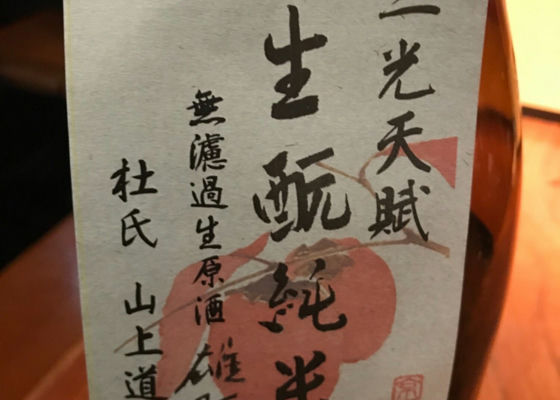 三光天賦
生酛純米
無濾過生原酒 雄
杜氏 山上道